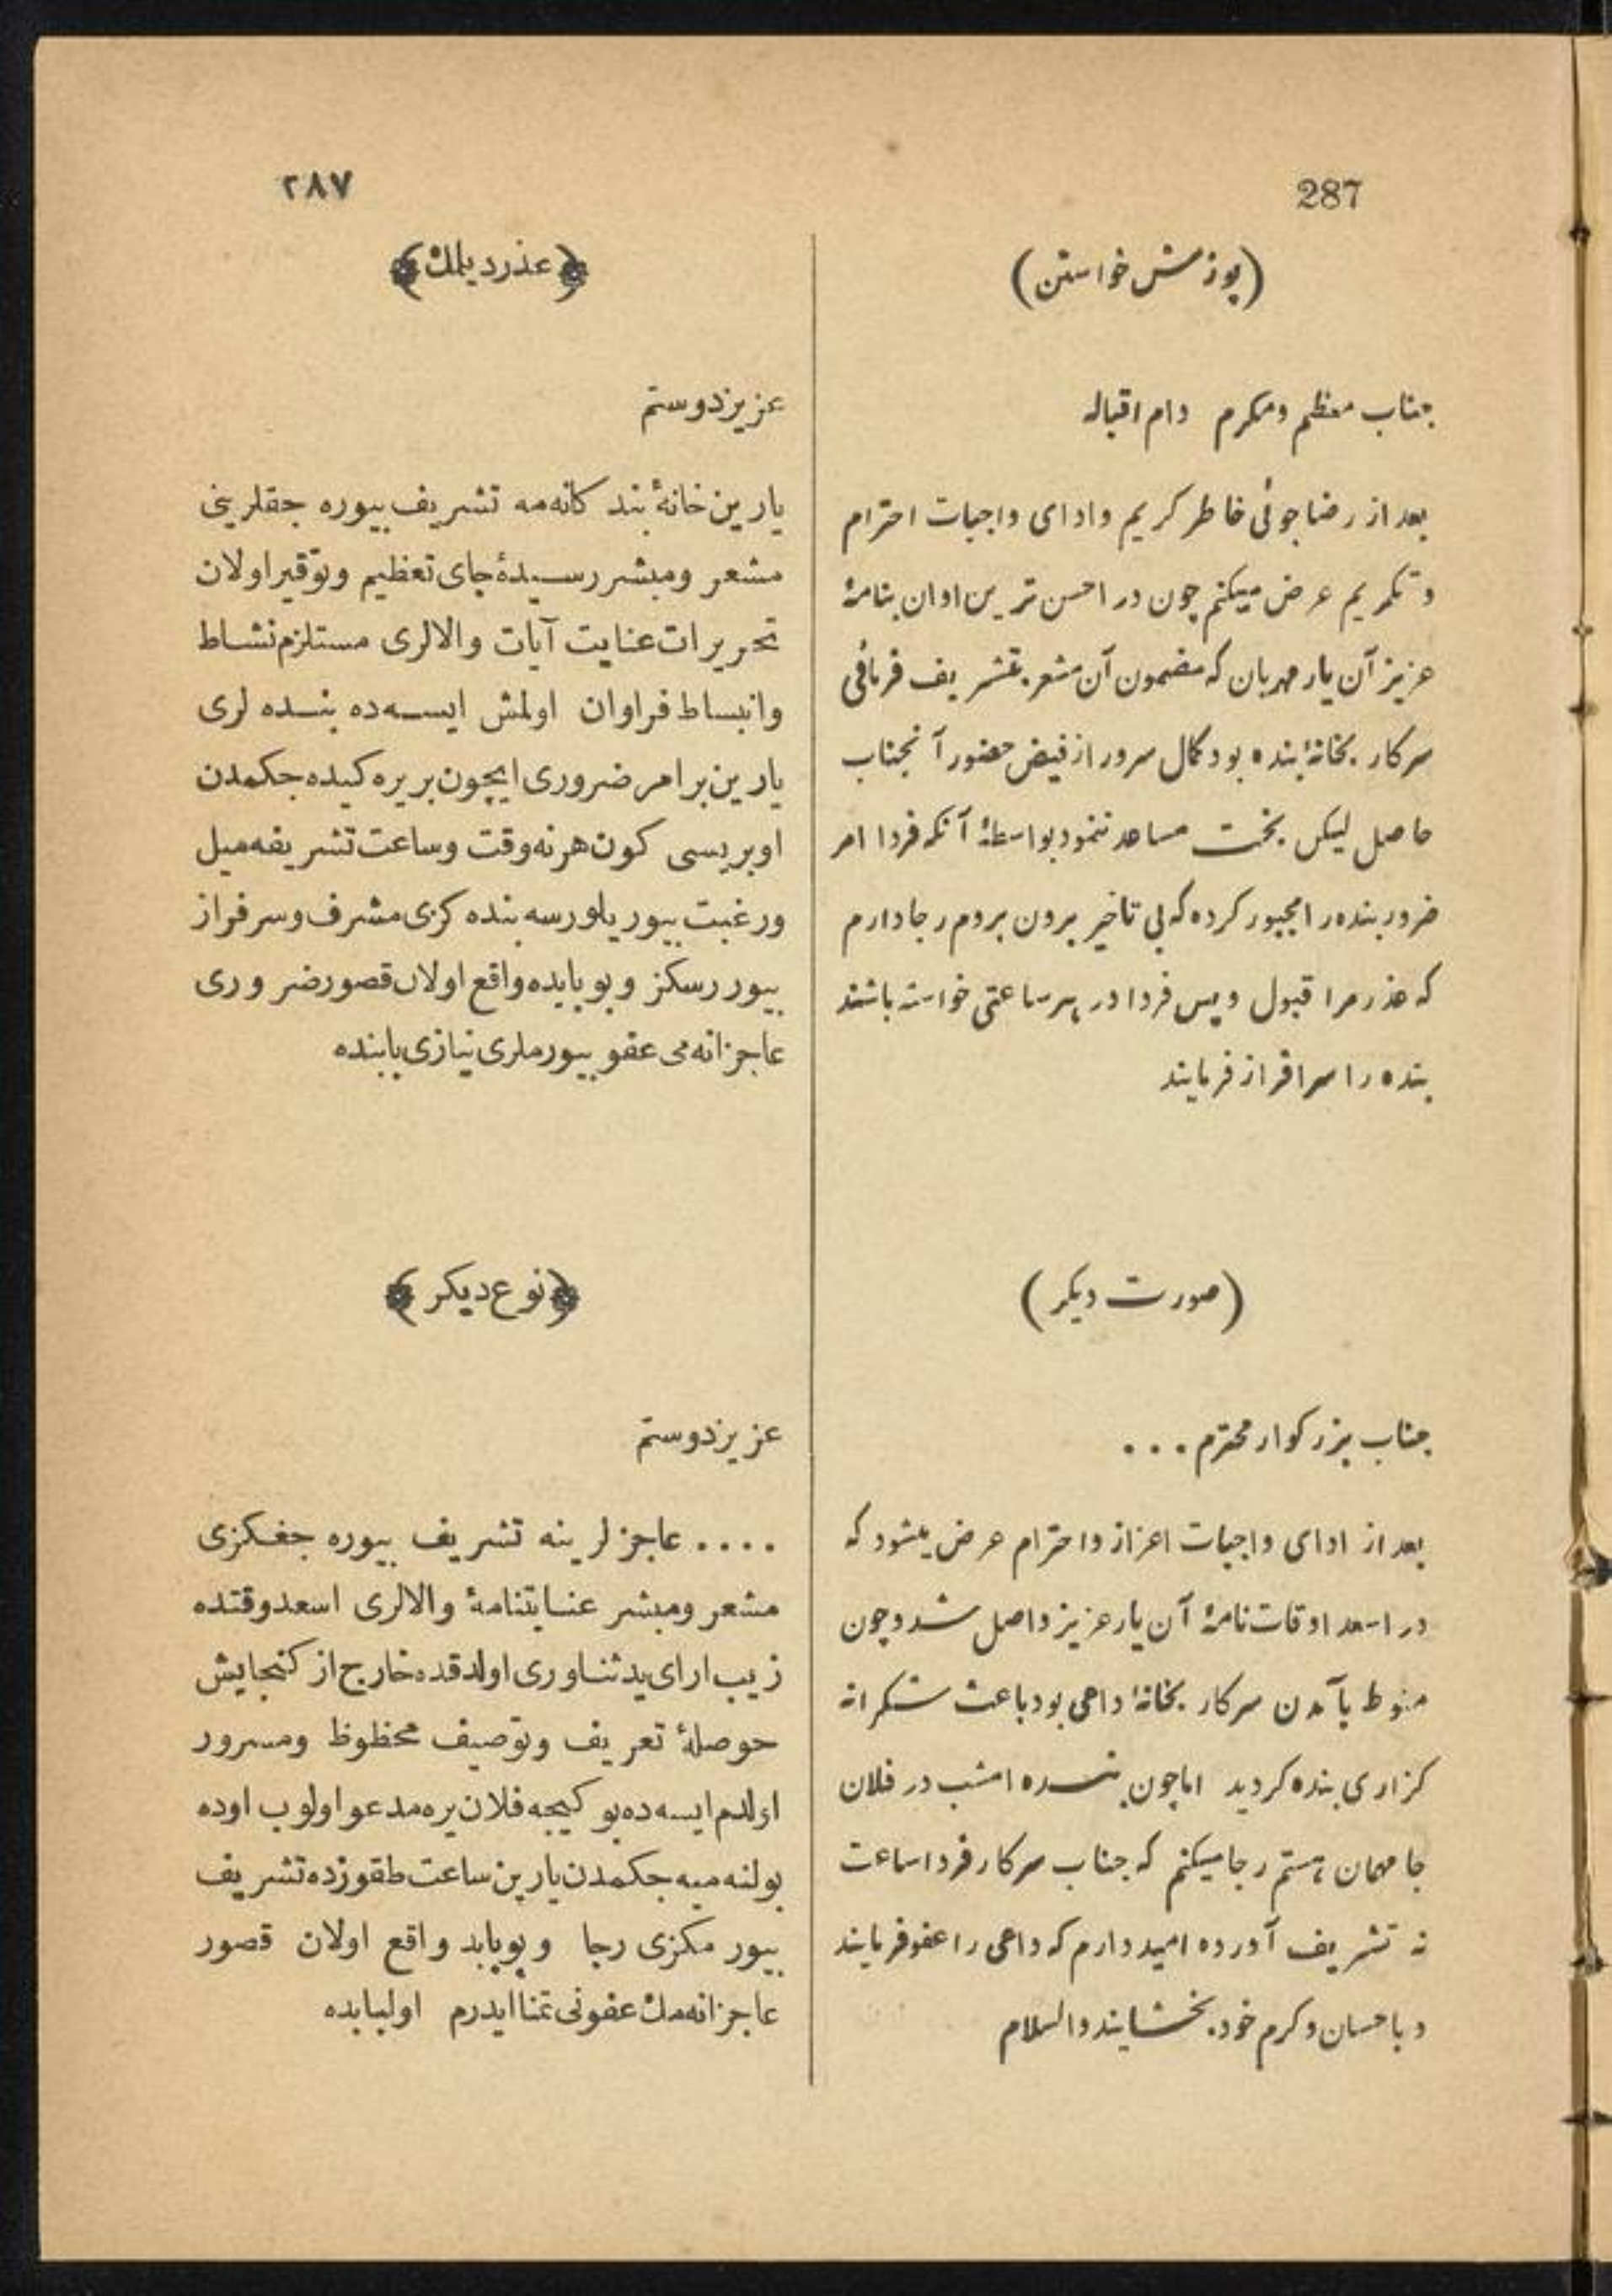 287
(پوزش خواستن)
جناب معظم ومکرم دام اقباله
بعد از رضاجوئی خاطر کریم وادای واجبات احترام
وتکریم عرض میکنم چون در احسن ترین اوان بنامهٔ
عزیز آن یار مهربان که مضمون آن مشعر بتشریف فرمائی
سرکار بخانهٔ بنده بود کمال سرور از فیض حضور آنجناب
حاصل لیکن بخت مساعد ننمود بواسطهٔ آنکه فردا امر
ضرور بنده را مجبور کرده که بی تاخیر برون بروم رجا دارم
که عذر مرا قبول وپس فردا در هر ساعتی خواسته باشند
بنده را سرافراز فرمایند
(صورت دیکر)
جناب بزرکوار محترم . . .
بعد از ادای واجبات اعزاز واحترام عرض میشود که
در اسعد اوقات نامهٔ آن یار عزیز واصل شد وچون
منوط بآمدن سرکار بخانهٔ داعی بود باعث شکرانه
کزاری بنده کردید اما چون بنده امشب در فلان
جا مهمان هستم رجا میکنم که جناب سرکار فردا ساعت
نه تشریف آورده امید دارم که داعی را عفو فرمایند
وباحسان وکرم خود بخشایند والسلام
٢٨٧
﴿عذر دیلمك﴾
عزیز دوستم
یارین خانهٔ بندکانه‌مه تشریف بیوره جقلرینی
مشعر ومبشر رسیدهٔ جای تعظیم وتوقیر اولان
تحریرات عنایت آیات والالری مستلزم نشاط
وانبساط فراوان اولمش ایسه‌ده بنده لری
یارین بر امر ضروری ایچون بر یره کیده‌جکمدن
اوبریسی کون هر نه وقت وساعت تشریفه میل
ورغبت بیوریلورسه بنده کزی مشرف وسرفراز
بیوررسکز وبو بابده واقع اولان قصور ضروری
عاجزانه‌می عفو بیورملری نیازی بابنده
﴿نوع دیکر﴾
عزیز دوستم
.... عاجزلرینه تشریف بیوره جغکزی
مشعر ومبشر عنایتنامهٔ والالری اسعد وقتده
زیب ارای ید ثناوری اولدقده خارج از کنجایش
حوصلهٔ تعریف وتوصیف محظوظ ومسرور
اولدم ایسه‌ده بو کیجه فلان یره مدعو اولوب اوده
بولنه‌میه‌جکمدن یارین ساعت طقوزده تشریف
بیورمکزی رجا وبو بابد واقع اولان قصور
عاجزانه‌مك عفونی تمنا ایدرم اولبابده